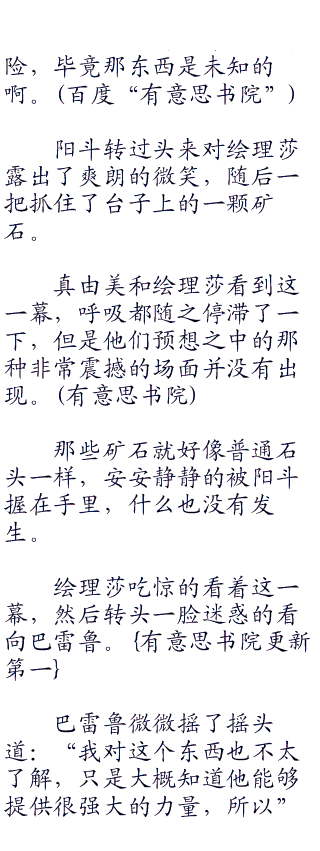 险，毕竟那东西是未知的
啊。(百度“有意思书院”)
阳斗转过头来对绘理莎
露出了爽朗的微笑，随后一
把抓住了台子上的一颗矿
石。
真由美和绘理莎看到这
一幕，呼吸都随之停滞了一
下，但是他们预想之中的那
种非常震撼的场面并没有出
现。(有意思书院)
那些矿石就好像普通石
头一样，安安静静的被阳斗
握在手里，什么也没有发
生。
绘理莎吃惊的看着这一
幕，然后转头一脸迷惑的看
向巴雷鲁。{有意思书院更新
第一}
巴雷鲁微微摇了摇头
道：“我对这个东西也不太
了解，只是大概知道他能够
提供很强大的力量，所以”